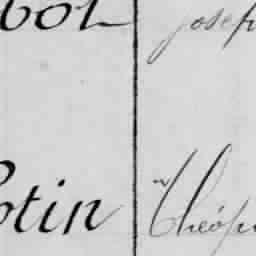 bot joseph
otin Théop